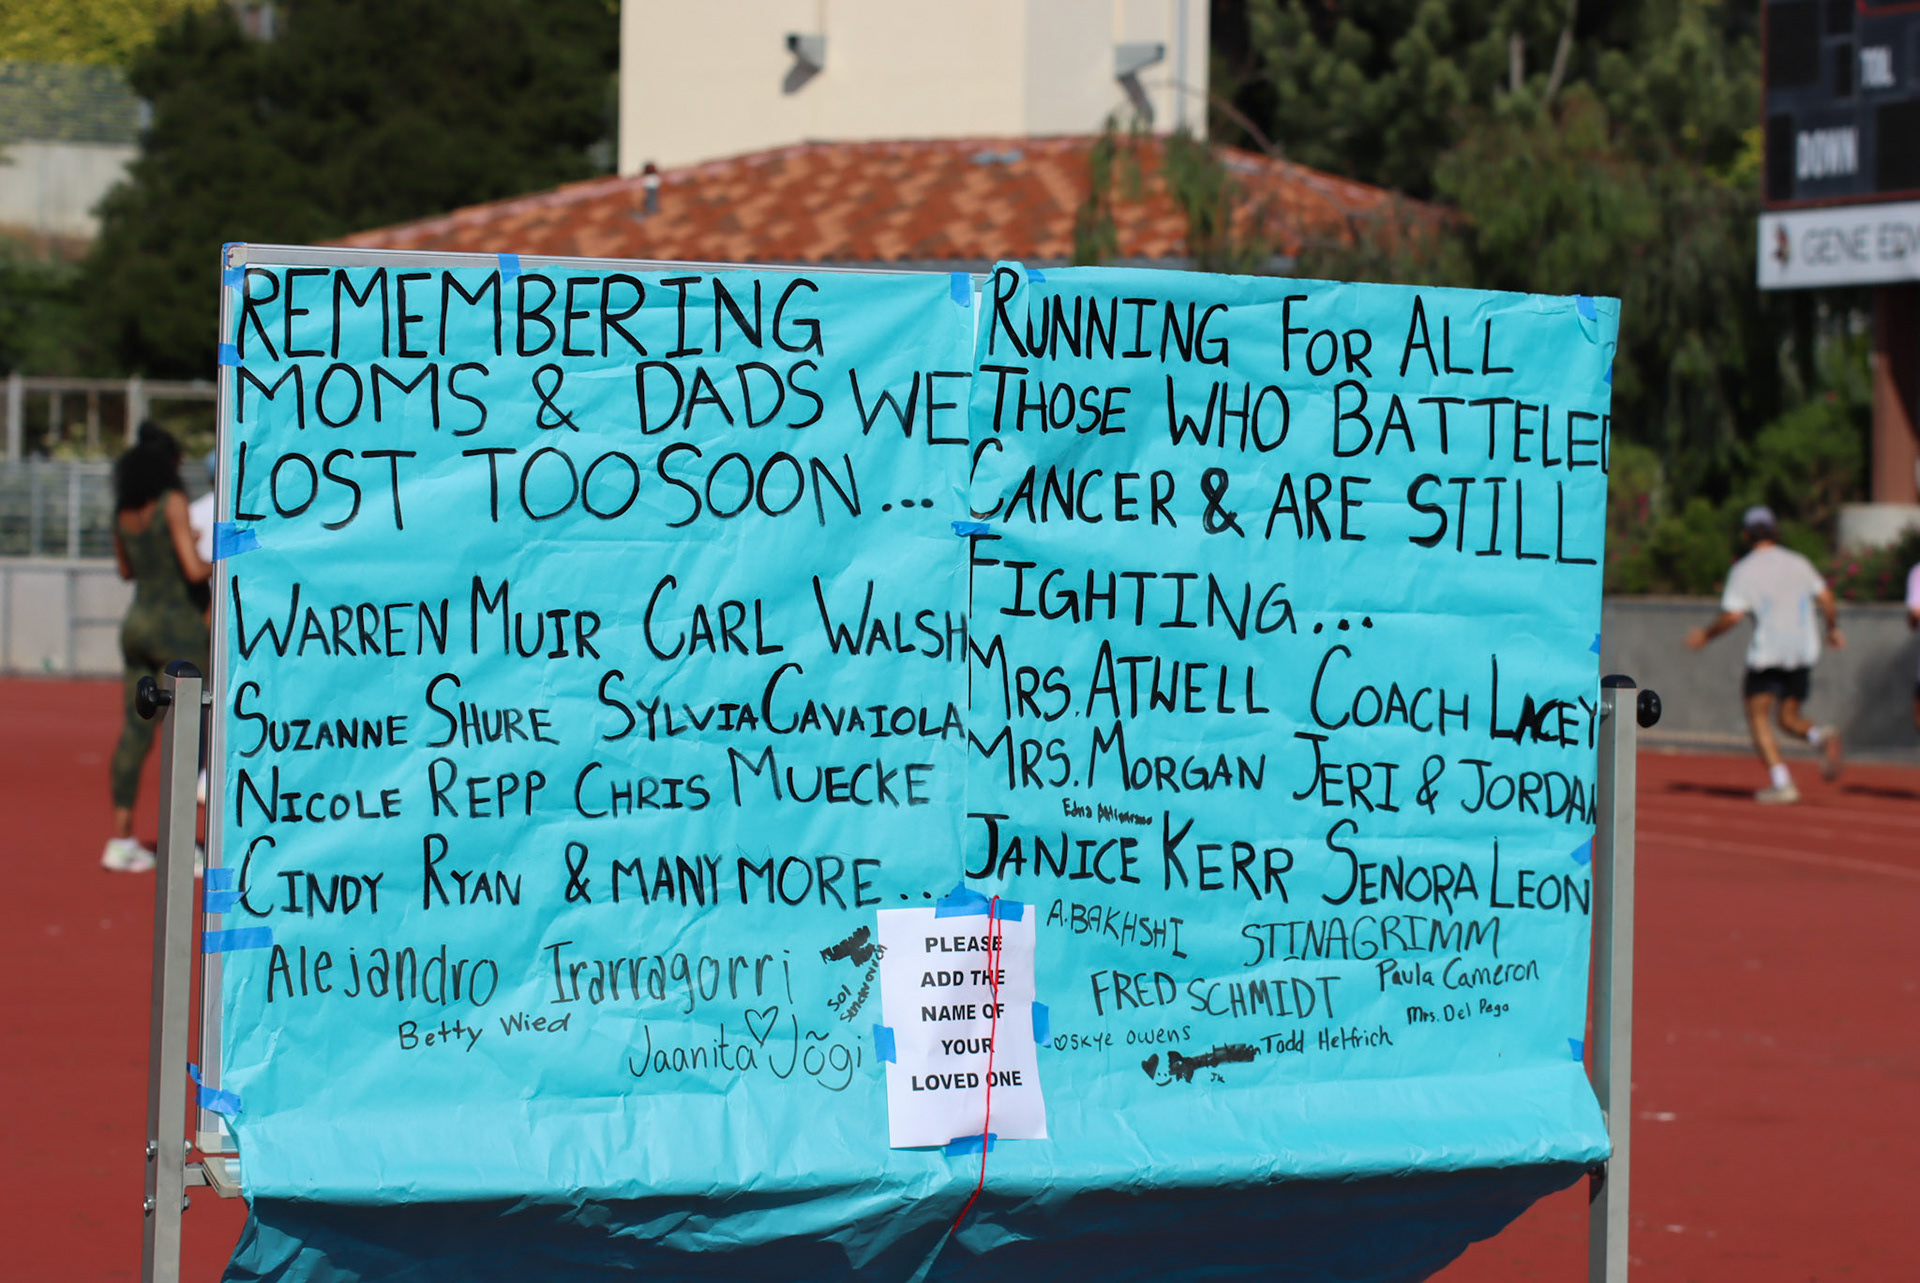 REMEMBERING
MOMS & DADS WE
LOST TOO SOON...
WARREN MUIR CARL WALSH
SUZANNE SHURE SYLVIA CAVAIOLA
NICOLE REPP CHRIS MUECKE
CINDY RYAN & MANY MORE...
Alejandro Irarragorri
Sol
Betty Wied
Jaanita Jõgi
RUNNING FOR ALL
THOSE WHO BATTELED
CANCER & ARE STILL
FIGHTING...
MRS. ATWELL COACH LACEY
MRS. MORGAN JERI & JORDAN
Edna
JANICE KERR SENORA LEON
A. BAKHSHI STINA GRIMM
FRED SCHMIDT Paula Cameron
Mrs. Del Pego
Skye Owens Todd Helfrich
JK
PLEASE
ADD THE
NAME OF
YOUR
LOVED ONE
TOL
DOWN
GENE